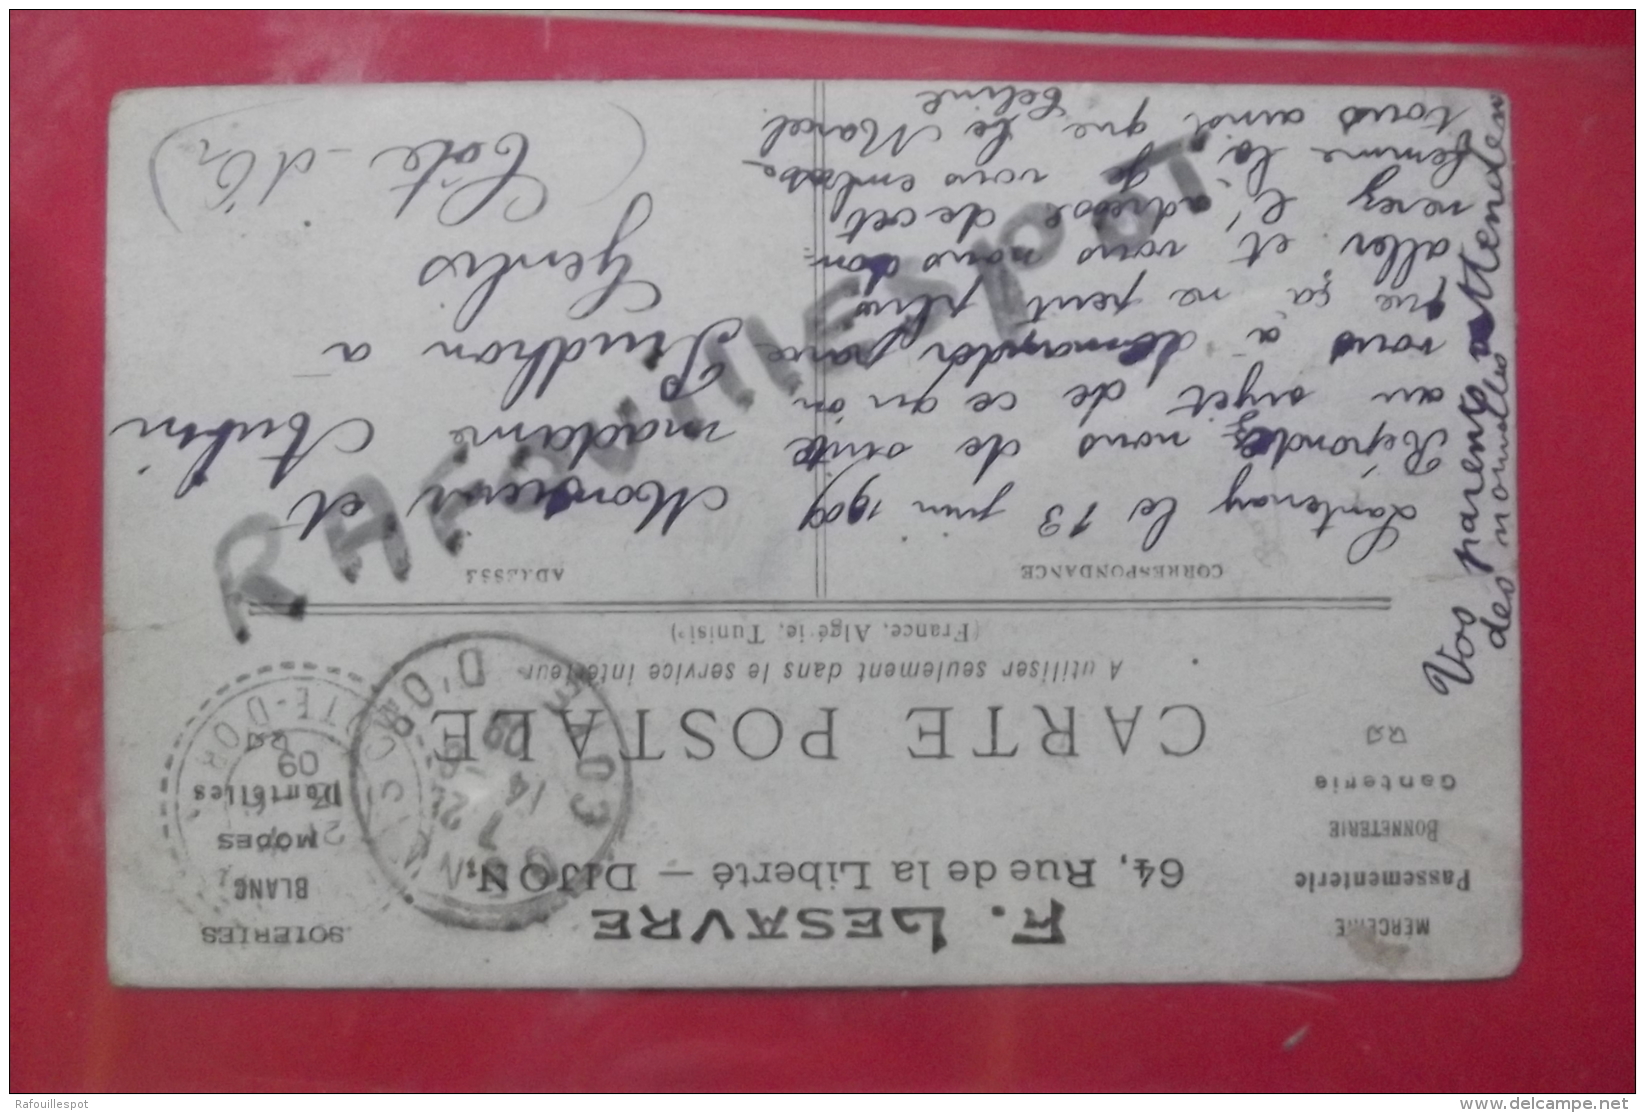 F. LESAVRE
64, Rue de la Liberté — DIJON
MERCERIE
Passementerie
BONNETERIE
Ganterie
SOIERIES
BLANC
MODES
Dentelles
CARTE POSTALE
A utiliser seulement dans le service intérieur
(France, Algérie, Tunisie)
CORRESPONDANCE
Lantenay le 13 juin 1909
Répondez nous de suite
au sujet de ce qu'on
vous a demander parce
que ça ne peut plus
aller et vous nous don=
nerez l'adresse de cet
femme là, je vous embrasse
tous ainsi que le Marcel
Céline
Vos parents attenden
des nouvelles
ADRESSE
Monsieur et
madame Aubin
Prudhon à
Genlis
(Côte-d'Or)
14
09
D'OR
COTE-D'OR
09
RAFOUILLESPOT
Rafouillespot
www.delcampe.net